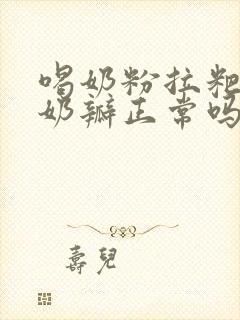 喝奶粉拉粑
奶瓣正常吗
壽兒